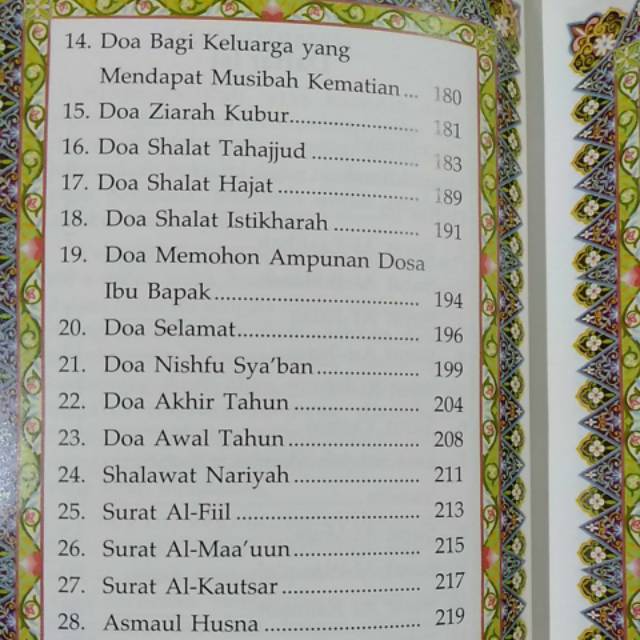 14. Doa Bagi Keluarga yang
Mendapat Musibah Kematian ... 180
15. Doa Ziarah Kubur............................ 181
16. Doa Shalat Tahajjud ....................... 183
17. Doa Shalat Hajat ............................. 189
18. Doa Shalat Istikharah .................. 191
19. Doa Memohon Ampunan Dosa
Ibu Bapak.......................................... 194
20. Doa Selamat..................................... 196
21. Doa Nishfu Sya’ban ..................... 199
22. Doa Akhir Tahun ......................... 204
23. Doa Awal Tahun .......................... 208
24. Shalawat Nariyah ......................... 211
25. Surat Al-Fiil ..................................... 213
26. Surat Al-Maa’uun ......................... 215
27. Surat Al-Kautsar ............................ 217
28. Asmaul Husna ............................... 219